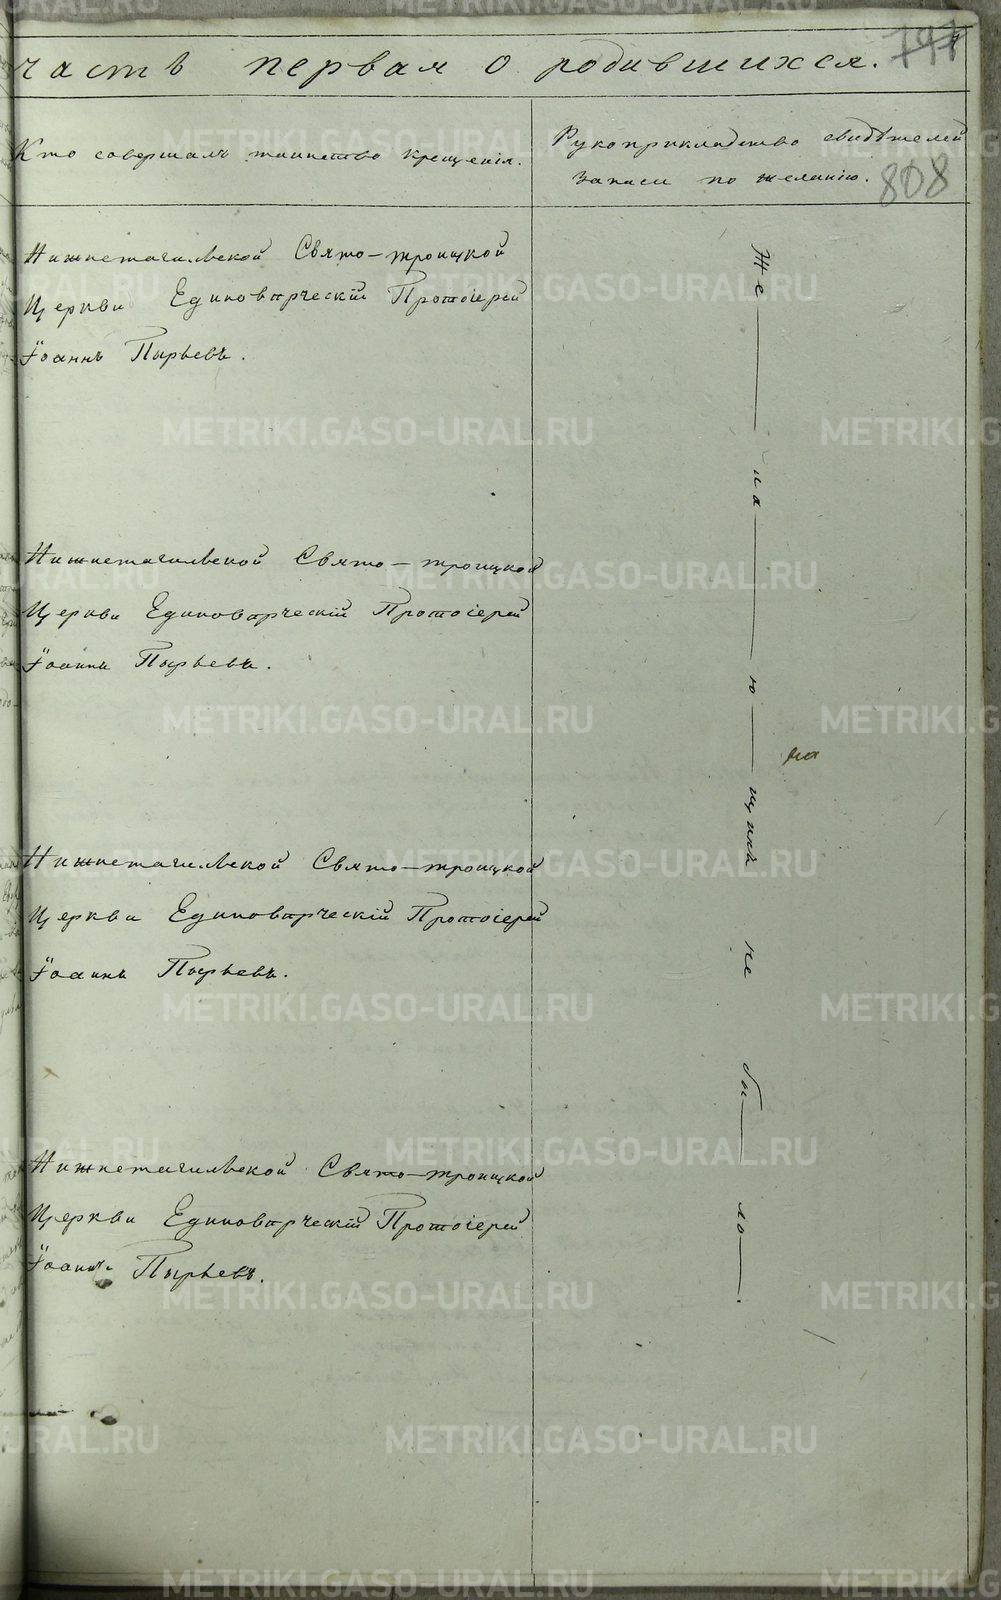 часть первая о родившихся.
808
Кто совершалъ таинство крещенія.
Рукоприкладство свидѣтелей
записи по желанію.
Нижнетагильской Свято-троицкой
Церкви Единовѣрческій Протоіерей
Іоаннъ Пырьевъ.
Нижнетагильской Свято-троицкой
Церкви Единовѣрческій Протоіерей
Іоаннъ Пырьевъ.
Нижнетагильской Свято-троицкой
Церкви Единовѣрческій Протоіерей
Іоаннъ Пырьевъ.
Нижнетагильской Свято-троицкой
Церкви Единовѣрческій Протоіерей
Іоаннъ Пырьевъ.
Же—ла—ю—щихъ не бы—ло—.
METRIKI.GASO-URAL.RU